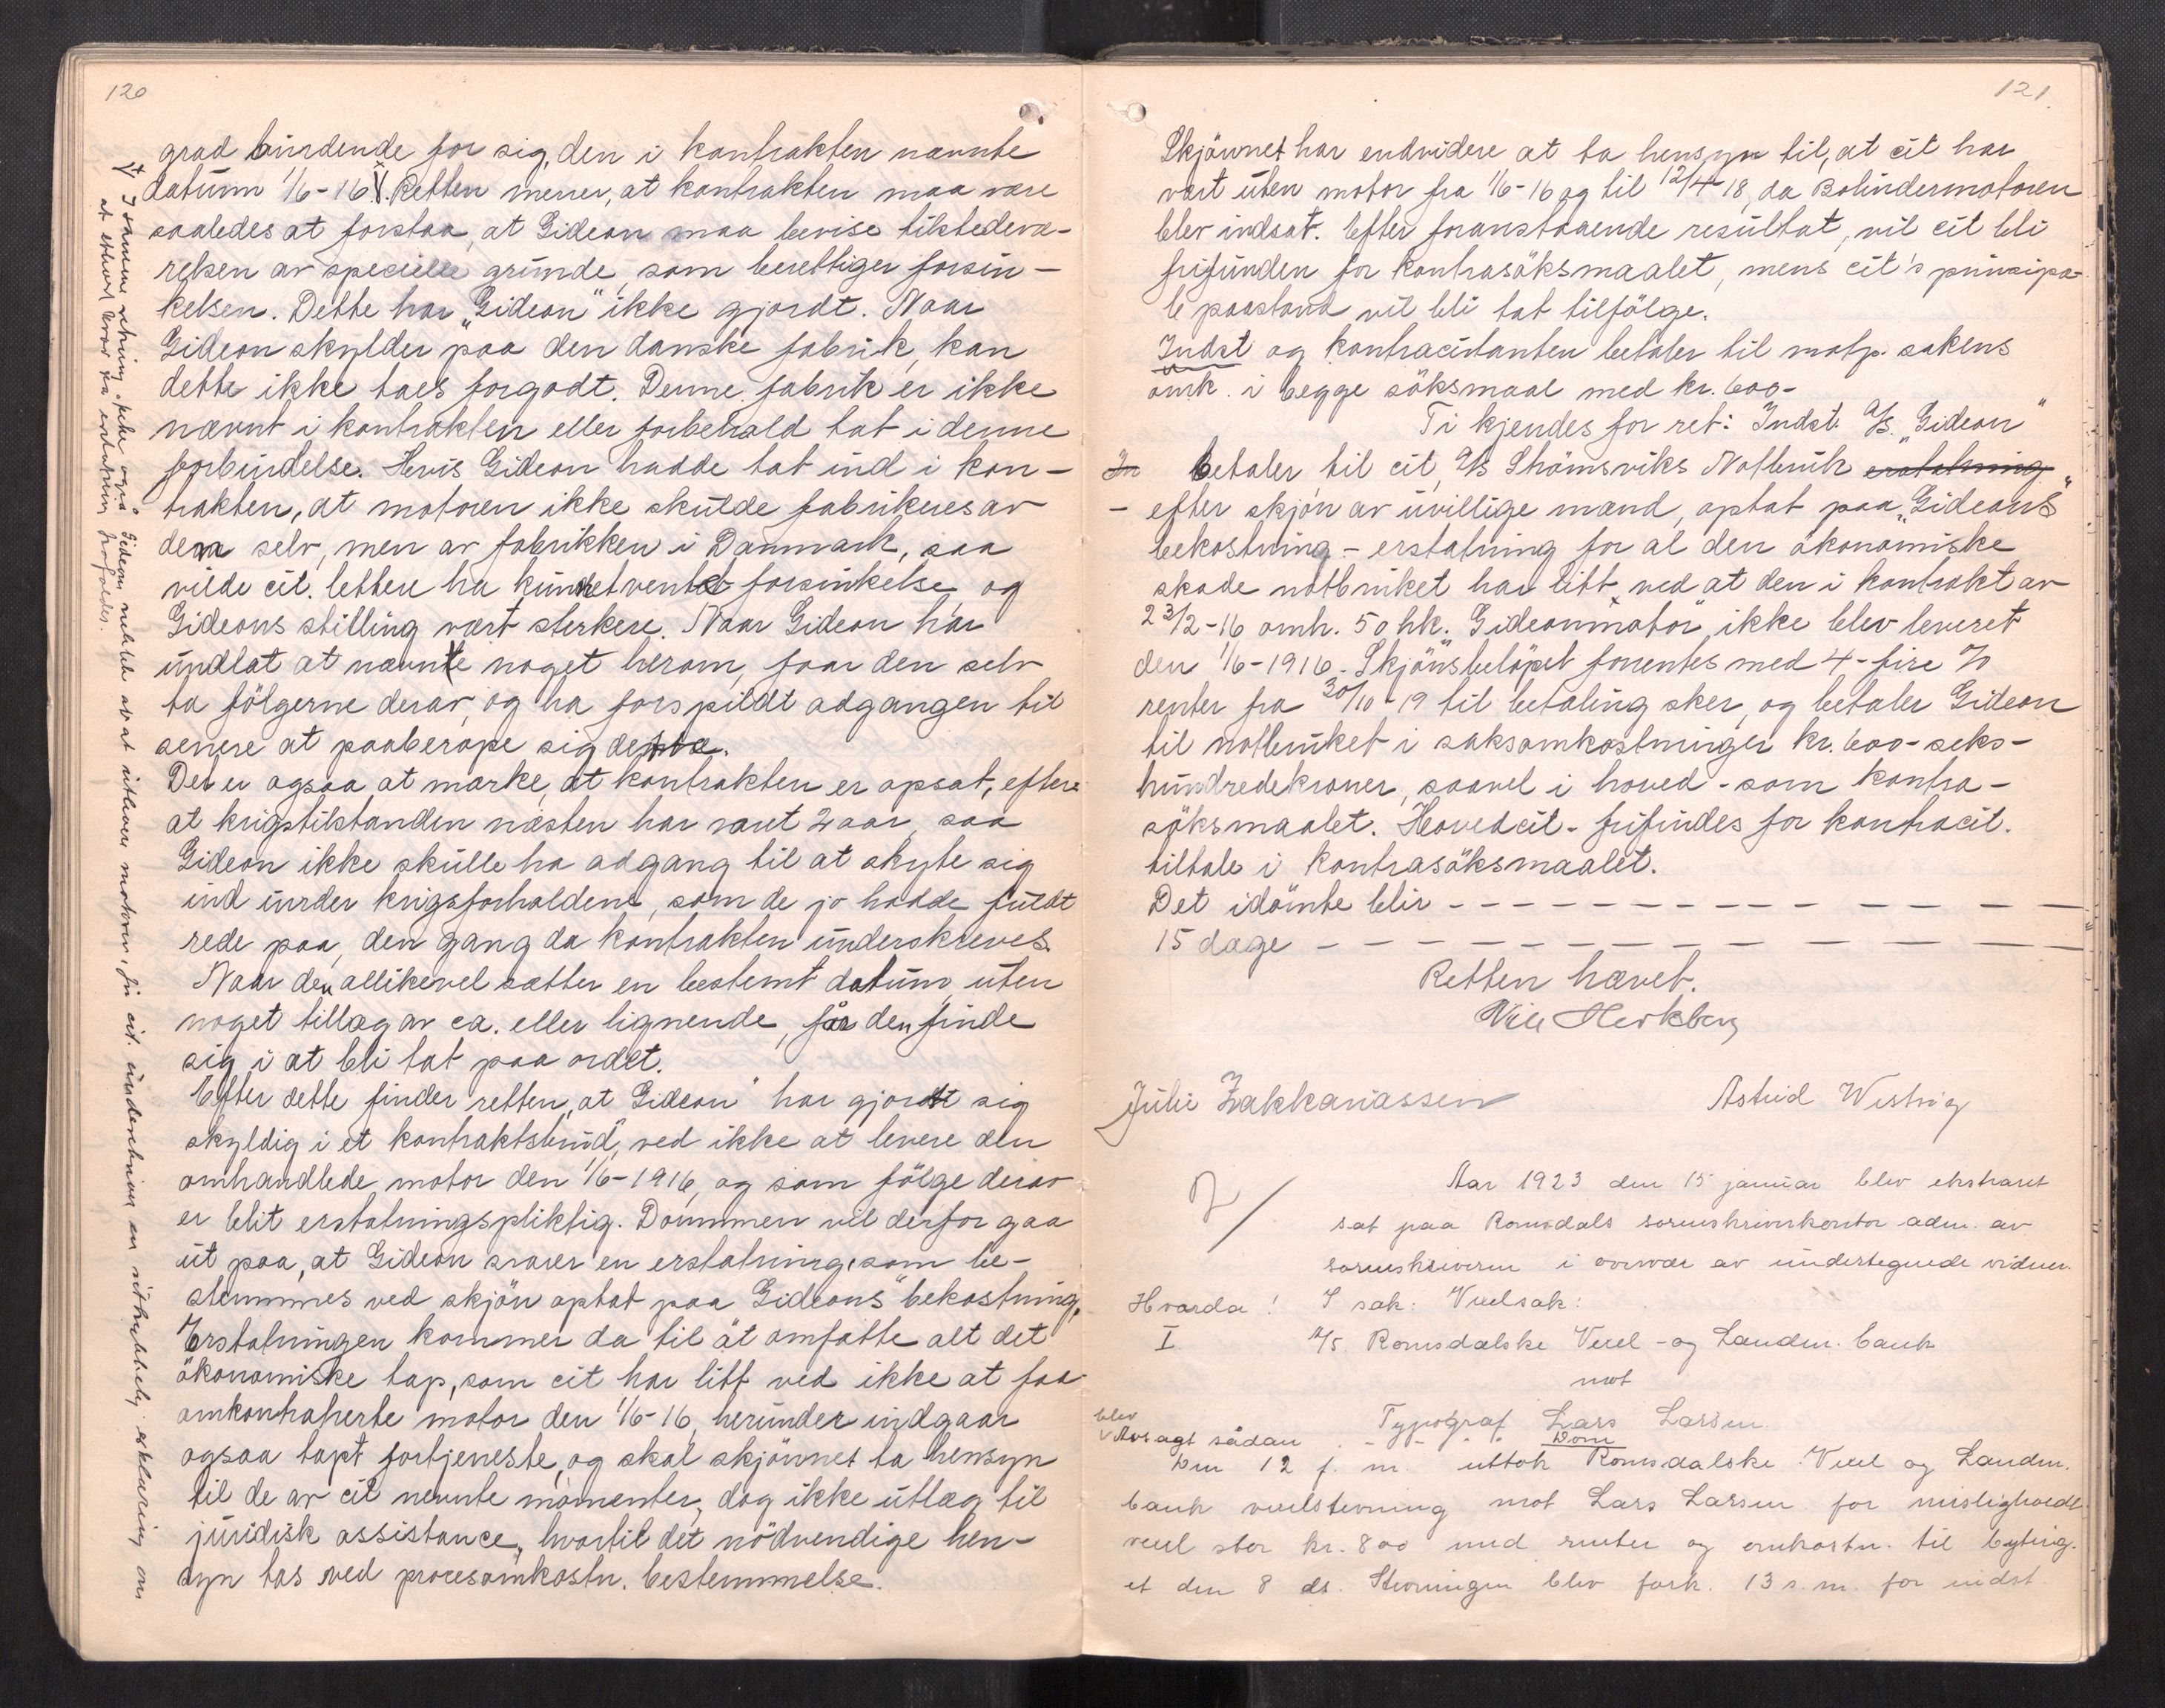 120
grad bindende for sig, den i kontrakten nævnte
datum 1/6-16 x). Retten mener, at kontrakten maa være
saaledes at forstaa, at Gideon maa bevise tilstedevæ-
relsen av specielle grunde, som berettiger forsin-
kelsen. Dette har „Gideon" ikke gjordt. Naar
Gideon skylder paa den danske fabrik, kan
dette ikke taes forgodt. Denne fabrik er ikke
nævnt i kontrakten eller forbehold tat i denne
forbindelse. Hvis Gideon hadde tat ind i kon-
trakten, at motoren ikke skulde fabrikeres av
dem selv, men av fabrikken i Danmark, saa
vilde cit. lettere ha kunnet vente forsinkelse, og
Gideons stilling vært sterkere. Naar Gideon har
undlat at nævnte noget herom, faar den selv
ta fölgerne derav, og ha forspildt adgangen til
senere at paaberope sig dette.
Det er ogsaa at mærke, at kontrakten er opsat, efter
at krigstilstanden næsten har varet 2 aar, saa
Gideon ikke skulle ha adgang til at skyte sig
ind under krigsforholdene, som de jo hadde fuldt
rede paa, den gang da kontrakten underskreves.
Naar den allikevel sætter en bestemt datum, uten
noget tillæg av ca. eller lignende, får den finde
sig i at bli tat paa ordet.
Efter dette finder retten, at „Gideon" har gjordt sig
skyldig i et kontraktsbrud, ved ikke at levere den
omhandlede motor den 1/6-1916, og som fölge derav
er blit erstatningspliktig. Dommen vil derfor gaa
ut paa, at Gideon svarer en erstatning, som be-
stemmes ved skjön optat paa „Gideons" bekostning.
Erstatningen kommer da til at omfatte alt det
ökonomiske tap, som cit har litt ved ikke at faa
omkontraherte motor den 1/6-16, herunder indgaar
ogsaa tapt fortjeneste, og skal skjönnet ta hensyn
til de av cit nevnte momenter, dog ikke utlæg til
juridisk assistance, hvortil det nödvendige hen-
syn tas ved procesomkostn. bestemmelse.
x) I samme retning peker også Gideons at at utlevere motoren, för cit. underskriver en erklæring om
at ethvert krav paa erstatning frafaldes.
121.
Skjönnet har endvidere at ta hensyn til, at cit har
vært uten motor fra 1/6-16 og til 12/4-18, da Bolindermotoren
blev indsat. Efter foranstaaende resultat, vil cit bli
frifunden for kontrasöksmaalet, mens cit's principa-
le paastand vil bli tat tilfölge.
Indst og kontracitanten betaler til motp. sakens
omk. i begge söksmaal med kr. 600-
Ti kjendes for ret: Indst. A/S. „Gideon"
betaler til cit, A/S Strömsviks Notbruk erstatning
- efter skjön av uvillige mænd, optat paa „Gideons"
bekostning - erstatning for al den ökonomiske
skade notbruket har litt, ved at den i kontrakt av
23/2-16 omh. 50 hk. „Gideonmotor" ikke blev leveret
den 1/6-1916. Skjönsbelöpet forrentes med 4-fire %
renter fra 30/10-19 til betaling sker, og betaler Gideon
til notbruket i saksomkostninger kr. 600-seks-
hundredekroner, saavel i hoved- som kontra-
söksmaalet. Hovedcit- frifindes for kontracit.
tiltale i kontrasöksmaalet.
Det idömte blir - - - - - - - - - - - -
15 dage - - - - - - - - - - - - -
Retten hævet.
Vill Herksberg
Julie Zakkariassen
Astrid Westvig
Aar 1923 den 15 januar blev ekstraret
sat paa Romsdals sorenskriverkontor adm. av
sorenskriveren i overvær av undertegnede vidner.
Hvorda!
I sak: Vexelsak:
I
A/S. Romsdalske Vexel- og Landm. bank
mot
Typograf Lars Larsen.
blev
Avsagt sådan Dom
Den 12 f. m. uttok Romsdalske Vexel og Landm.
bank vexelstevning mot Lars Larsen for misligholdt
vexel stor kr. 800 med renter og omkostn. til
et den 8 ds. Stevningen blev fork. 13 s. m. for indst